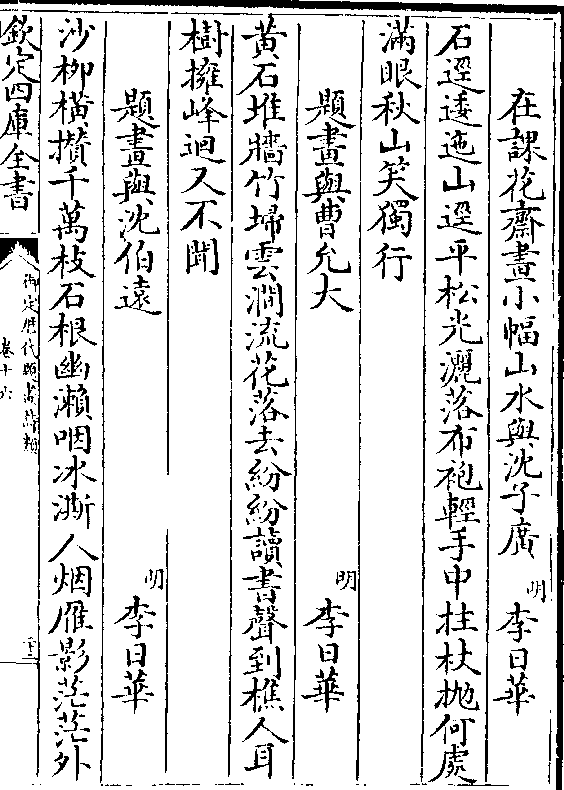 在課花齋畫小幅山水與沈子廣 明 李日華
石逕逶迤山逕平松光灑落布袍輕手中拄杖拋何處
滿眼秋山笑獨行
題畫與曹允大 明 李日華
黄石堆牆竹埽雲澗流花落去紛紛讀書聲到樵人耳
樹擁峰迴又不聞
題畫與沈伯遠 明 李日華
沙柳橫攢千萬枝石根幽瀨咽冰澌人烟雁影茫茫外
欽定四庫全書
御定歴代題畫詩類
卷十六